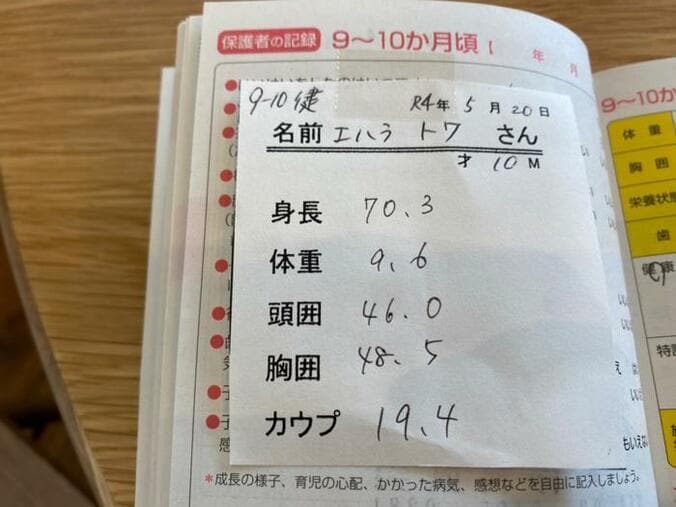 保護者の記録 9〜10か月頃【 年 月
9-10健 R4年 5月20日
名前 エハラ トワ さん
才 10M
身長 70.3
体重 9.6
頭囲 46.0
胸囲 48.5
カウプ 19.4
*成長の様子、育児の心配、かかった病気、感想などを自由に記入しましょう。
9〜10か
体重
胸囲
栄養状態
歯
健康